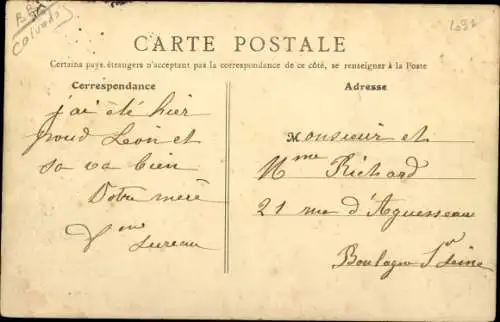 Calvados
1032
CARTE POSTALE
Certains pays étrangers n'acceptent pas la correspondance de ce côté, se renseigner à la Poste
Correspondance
j'ai été hier
Léon et
sa va bien
Votre mère
Vve
Lureau
Adresse
Monsieur et
Mme Richard
21 rue d'Aguesseau
Boulogne Sr Seine